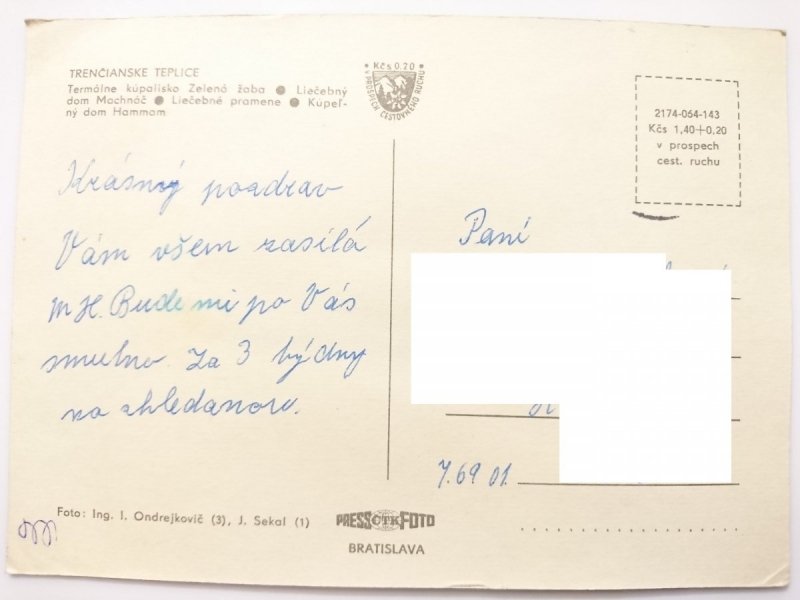 TRENČIANSKE TEPLICE
Termálne kúpalisko Zelená žaba ● Liečebný
dom Machnáč ● Liečebné pramene ● Kúpeľ-
ný dom Hammam
Kčs 0,20
V PROSPECH CESTOVNÉHO RUCHU
2174-064-143
Kčs 1,40+0,20
v prospech
cest. ruchu
Krásný pozdrav
Vám všem zasílá
M H. Bude mi po Vás
smutno. Za 3 týdny
na shledanou.
Paní
7.69 01
Foto: Ing. I. Ondrejkovič (3), J. Sekal (1)
PRESSČTKFOTO
BRATISLAVA